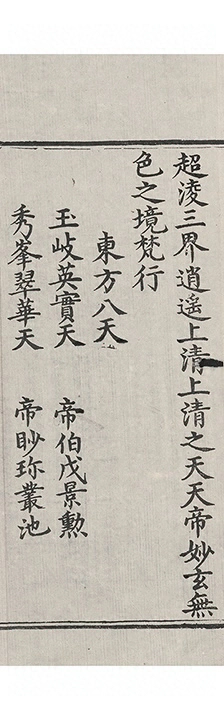 超凌三界逍遙上清上清之天天帝妙玄無
色之境梵行
東方八天
玉岐英實天　帝伯戊景勲
秀峯翠華天　帝眇珎叢池